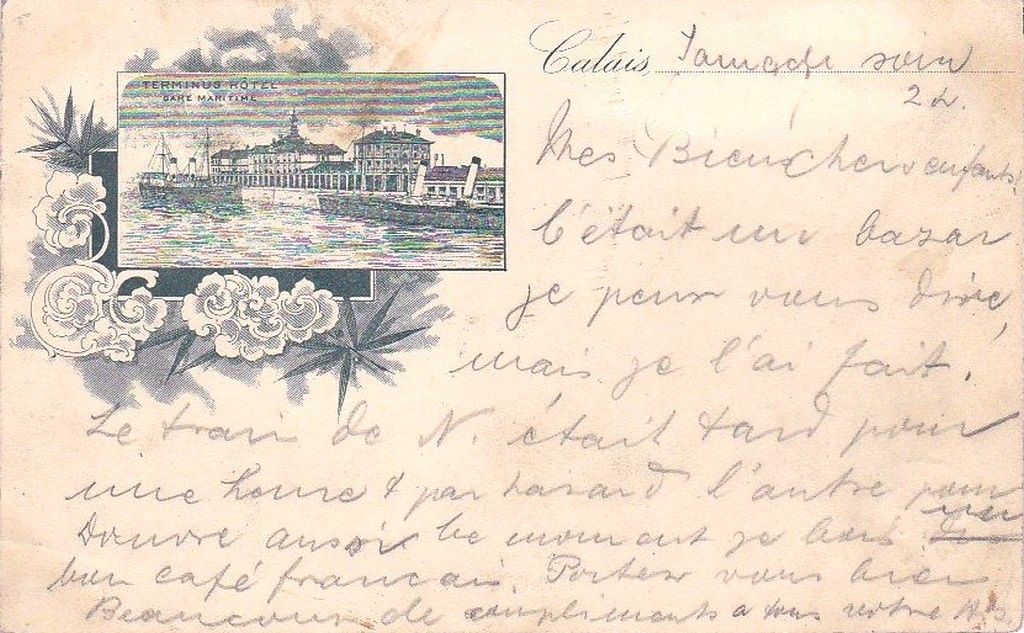 TERMINUS HÔTEL
GARE MARITIME
Calais, Samedi soir
24.
Mes Bien chers enfants!
C'était un bazar
je peux vous dire,
mais je l'ai fait!
Le train de N. était tard pour
une heure & par hasard l'autre pour
Douvre aussi. Ce moment je bois un
bon café francais. Portez vous bien
Beaucoup de compliments a tous votre